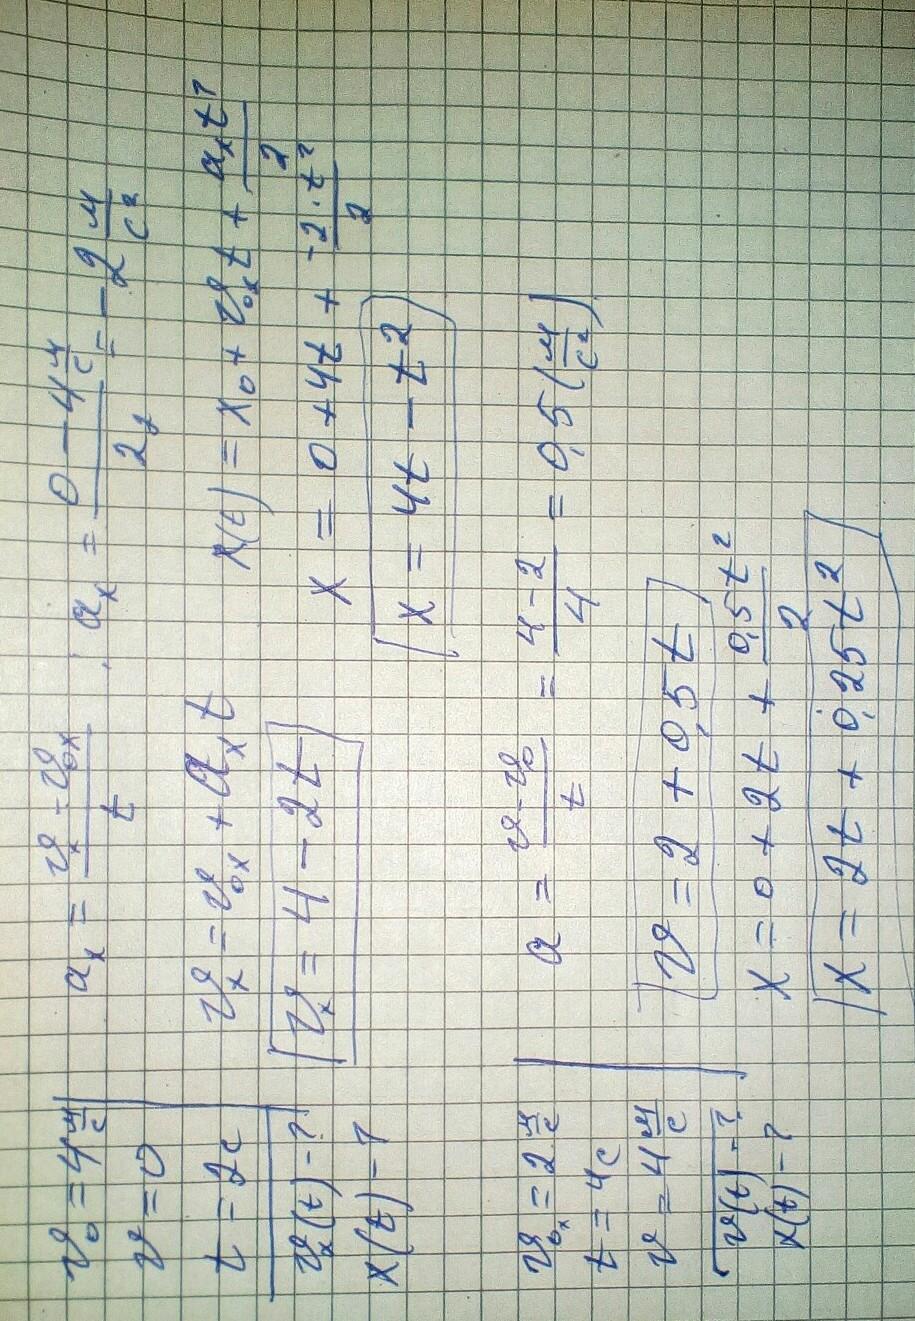 v₀ = 4 м/с
v = 0
t = 2с
vₓ(t) - ?
x(t) - ?
aₓ = (vₓ - v₀ₓ)/t ; aₓ = (0 - 4 м/с)/2с = -2 м/с²
vₓ = v₀ₓ + aₓt
vₓ = 4 - 2t
x(t) = x₀ + v₀ₓt + aₓt²/2
x = 0 + 4t + -2·t²/2
x = 4t - t²
v₀ₓ = 2 м/с
t = 4с
v = 4 м/с
v(t) - ?
x(t) - ?
a = (v - v₀)/t = (4 - 2)/4 = 0,5 (м/с²)
v = 2 + 0,5t
x = 0 + 2t + 0,5t²/2
x = 2t + 0,25t²